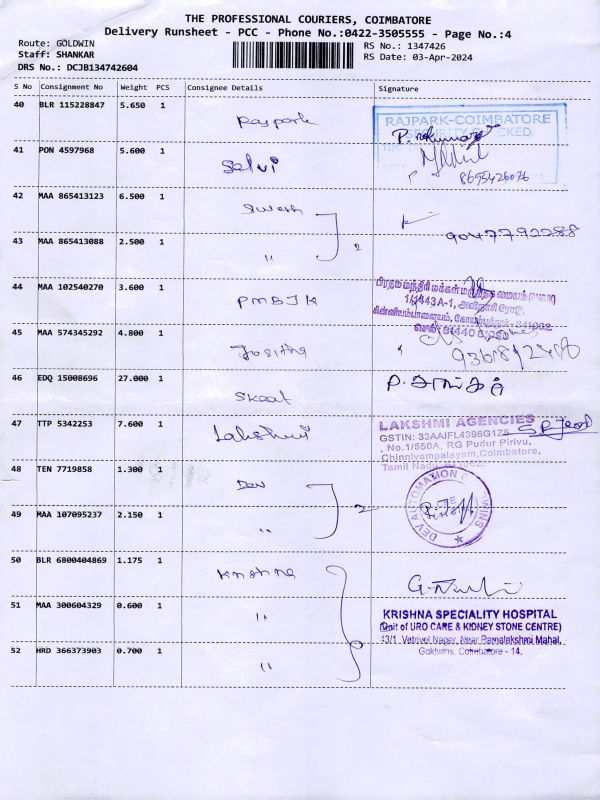 THE PROFESSIONAL COURIERS, COIMBATORE
Delivery Runsheet - PCC - Phone No.:0422-3505555 - Page No.:4
Route: GOLDWIN
Staff: SHANKAR
DRS No.: DCJB134742604
RS No.: 1347426
RS Date: 03-Apr-2024
S No Consignment No Weight PCS Consignee Details Signature
40 BLR 115228847 5.650 1 Rajpark
RAJPARK-COIMBATORE
41 PON 4597968 5.600 1 Selvi
8695426076
42 MAA 865413123 6.500 1
43 MAA 865413088 2.500 1 " 2
9047792288
44 MAA 102540270 3.600 1 PMBJK
பிரதம மந்திரி மக்கள் மருந்தக மையம்
1/1443A-1, அவிநாசி ரோடு,
45 MAA 574345292 4.800 1
46 EDQ 15008696 27.000 1
47 TTP 5342253 7.600 1 Lakshmi
LAKSHMI AGENCIES
GSTIN: 33AAIFL4396G1Z5
No.1/550A, RG Pudur Pirivu,
Chinniyampalayam, Coimbatore,
Tamil Nadu
48 TEN 7719858 1.300 1 Dev
49 MAA 107095237 2.150 1 " 2
DEV AUTOMATION
50 BLR 6800404869 1.175 1 Krishna
51 MAA 300604329 0.600 1 "
52 HRD 366373903 0.700 1 "
KRISHNA SPECIALITY HOSPITAL
(Unit of URO CARE & KIDNEY STONE CENTRE)
43/1, Vetrivel Nagar, Near Ramalakshmi Mahal,
Goldwins, Coimbatore - 14.